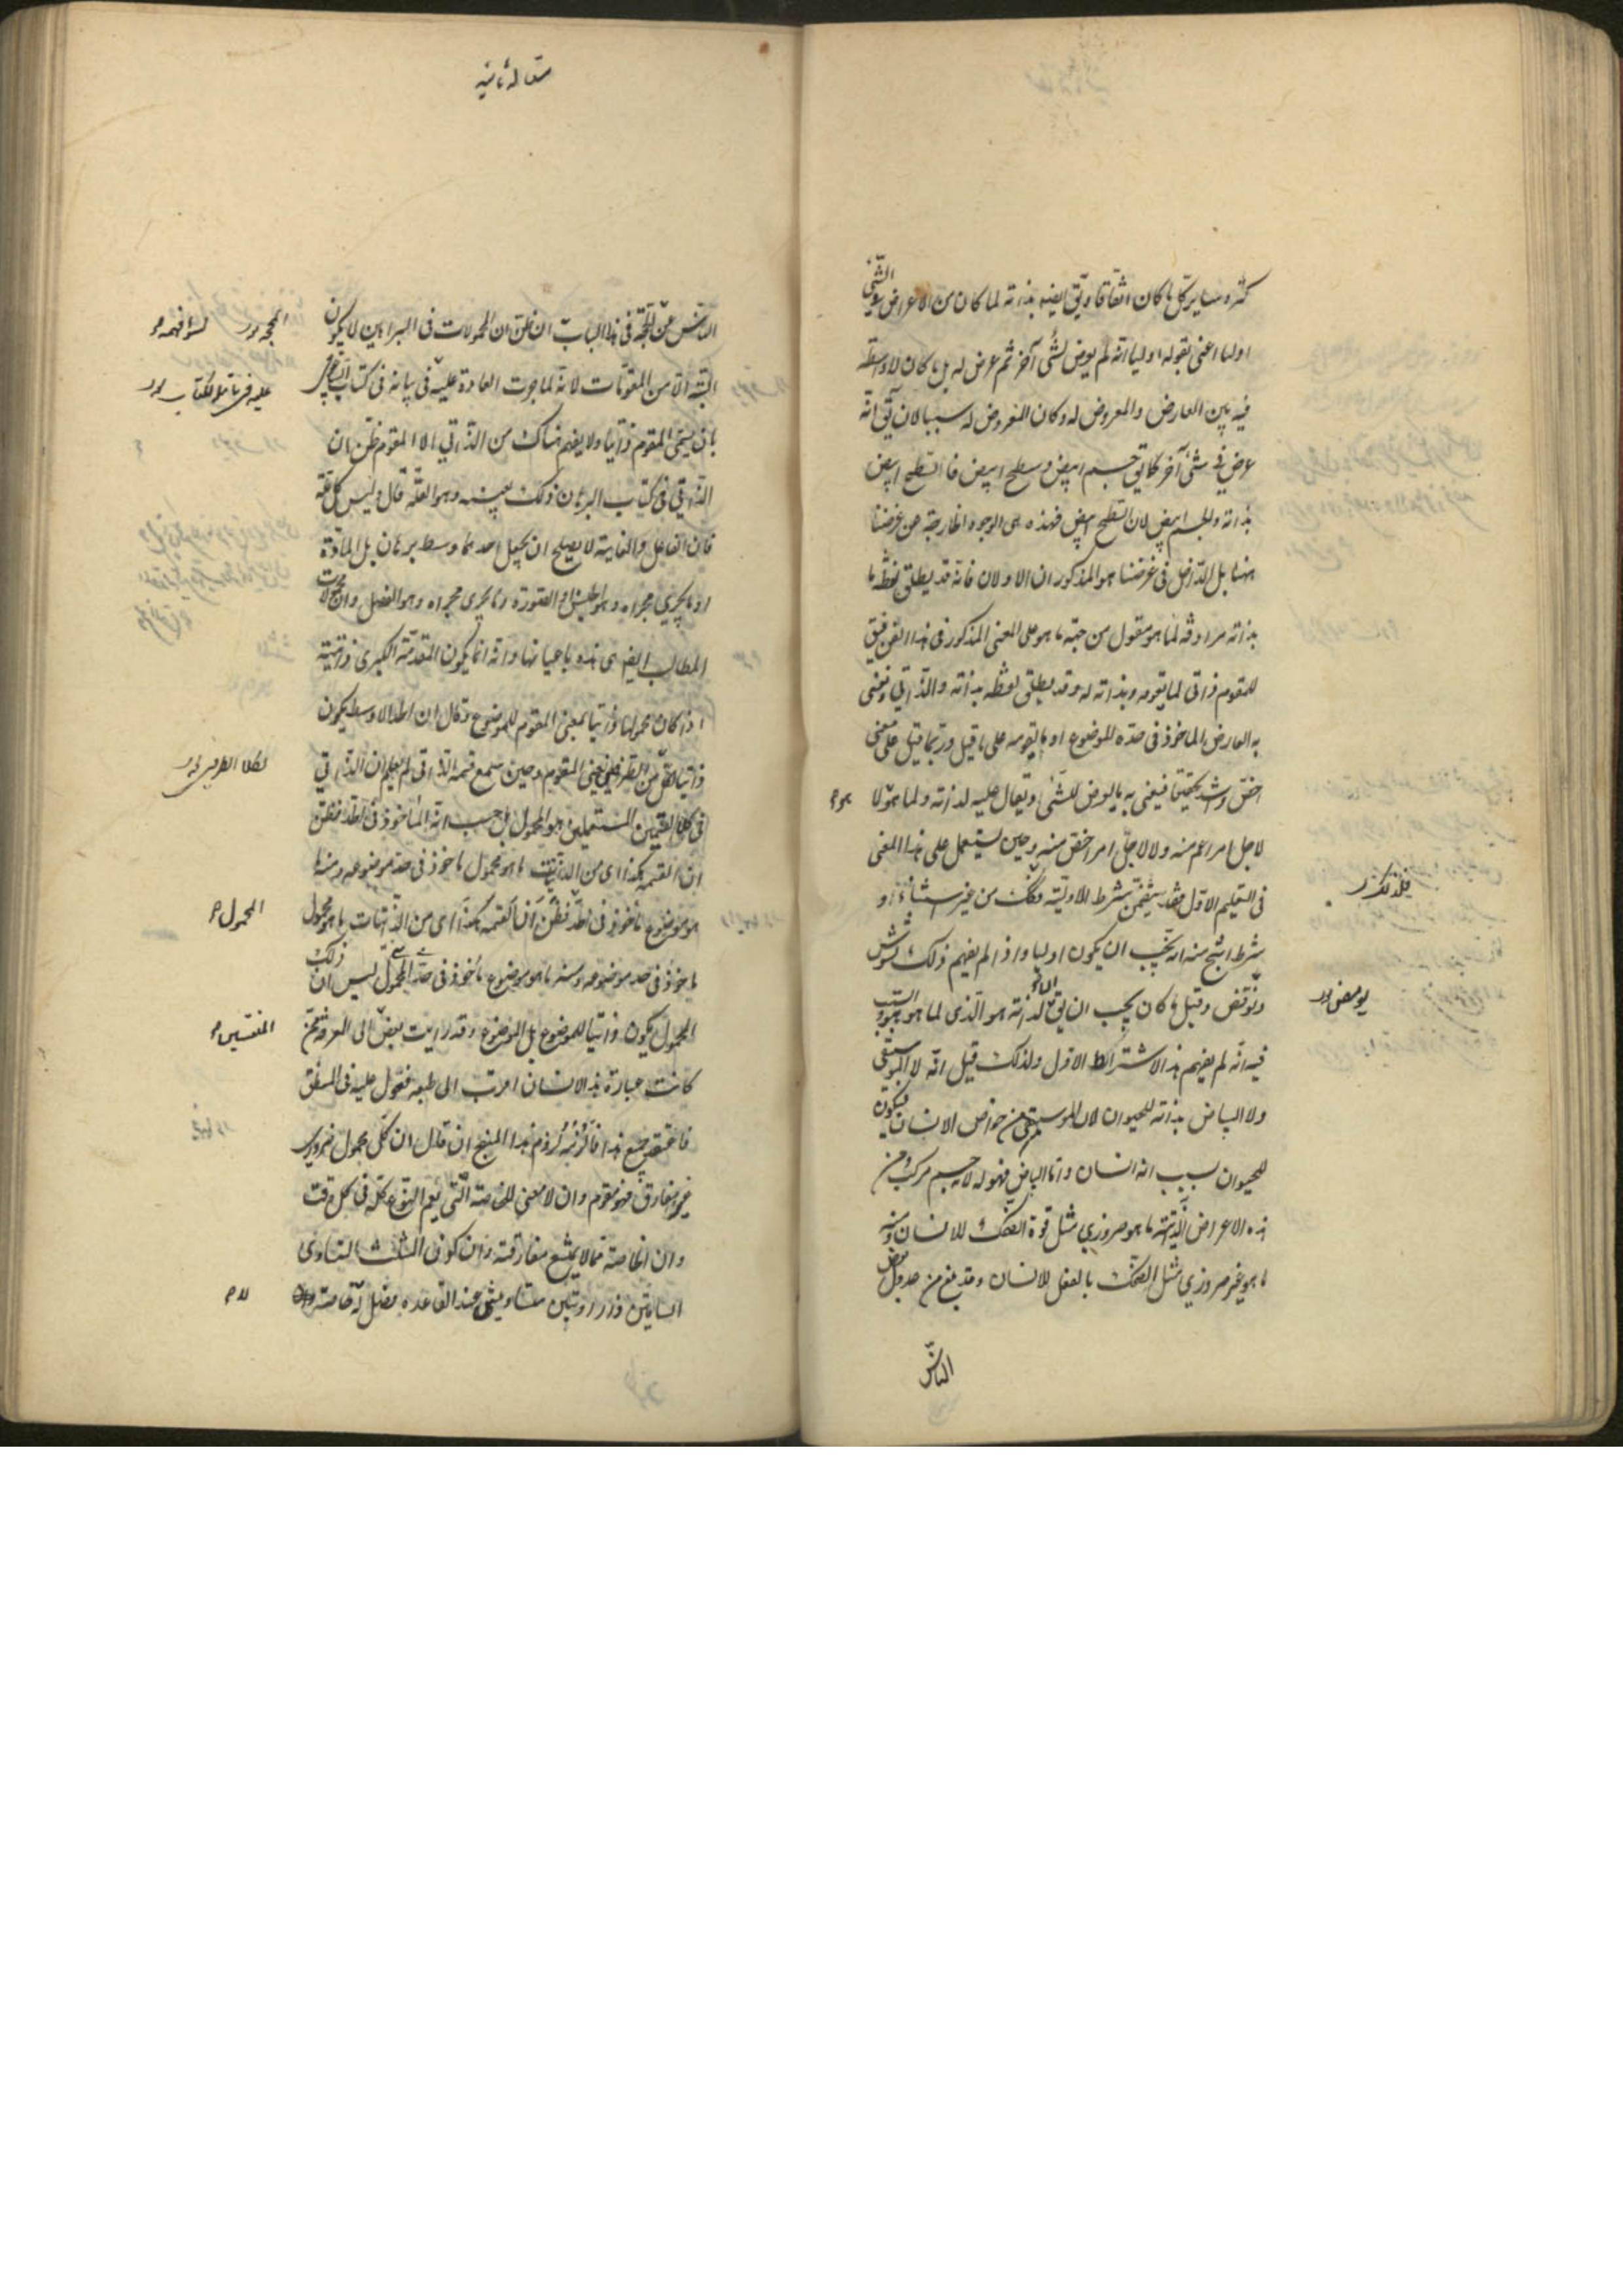 اوليا اعنى بقوله اوليا انه لم يعرض لشئ آخر ثم عرض له بل ما كان لا واسطة
فيه بين العارض والمعروض له وكان المعروض له سببا لان يق انه
عرض فى شئ آخر كما يق جسم ابيض وسطح ابيض فالسطح ابيض
بذاته والجسم ابيض لان السطح ابيض فهذه هى الوجوه الخارجة عن غرضنا
ههنا بل الداخل فى غرضنا هو المذكوران الاولان فانه قد يطلق لفظة ما
بذاته مرادفة لما هو مقول من جهة ما هو على المعنى المذكور فى هذا الفن فيق
للمقوم ذاتى لما يقومه وبذاته له وقد يطلق لفظه بذاته والذاتى ويعنى
به العارض الماخوذ فى حده الموضوع او ما يقومه على ما قيل وربما قيل على معنى
اخص واشد تحقيقا فيعنى به ما يعرض للشئ ويقال عليه لذاته ولما هو لا
هو م
لاجل امر اعم منه ولا لاجل امر اخص منه وحين يستعمل على هذا المعنى
فى التعليم الاول فقد يتضمن شرط الاولية وذلك من غير استثناء او
فلذلك
شرط انتج منه انه يجب ان يكون اوليا واذا لم يفهم ذلك تشوش
ونوقض وقيل ما كان يجب ان يق لذاته هو الذى لما هو هو والسبب
فيه انه لم يفهم هذا الاشتراك الاول ولذلك قيل انه لا الموسيقى
ولا البياض بذاته للحيوان لان الموسيقى من خواص الانسان فيكون
للحيوان بسبب انه انسان واما البياض فهو له لانه جسم مركب ومن
هذه الاعراض الذاتية ما هو ضرورى مثل قوة الضحك للانسان ومنه
ما هو غير ضرورى مثل الضحك بالفعل للانسان وقد بلغ من عدول بعض
الناس
مقاله ثانيه
الناس عن المحجة فى هذا الباب ان ظن ان المحمولات فى البراهين لا يكون
البتة الا من المقومات لانه لما جرت العادة عليه فى بيانه فى كتاب
بان يسمى المقوم ذاتيا ولا يفهم هناك من الذاتى الا المقوم ظن ان
الذاتى فى كتاب البرهان ذلك بعينه وهو العلة قال وليس كل علة
فان الفاعل والغاية لا يصلح ان يجعل احدهما وسط برهان بل المادة
او ما يجرى مجراه وهو الجنس او الصورة وما يجرى مجراه وهو الفصل وان محمولات
المطالب ايضا هى هذه باعيانها وانه انما يكون المقدمة الكبرى ذاتية
اذا كان محمولها ذاتيا بمعنى المقوم للموضوع وقال ان الحد الاوسط يكون
ذاتيا لكل من الطرفين يعنى المقوم وحين سمع قسمة الذاتى لم يعلم ان الذاتى
فى كلى القسمين المستعملين هو المحمول بل حسب انه الماخوذ فى الحد فظن
ان القسمه هكذا اى من الذاتيات ما هو محمول ماخوذ فى حد موضوعه ومنها
هو موضوع ماخوذ فى الحد فظن ان القسمه هكذا اى من الذاتيات ما هو محمول
المحمول م
ماخوذ فى حد موضوعه ومنه ما هو موضوع ماخوذ فى حد المحمول ليس ان ذلك
المحمول يكون ذاتيا للموضوع بل الموضوع وقد رايت بعض الى العروض
كانت عبارة هذا الانسان اقرب الى طبعه فعول عليه فى المنطق
فاعتقد جميع هذا فالزمه لزوم هذا المنهج ان قال ان كل محمول ضرورى
غير مفارق فهو مقوم وان لا معنى للخاصة التى تعم النوع كله فى كل وقت
وان الخاصة مما لا يمتنع مفارقته وان كون المثلث المتساوى
الساقين ذا زاويتين متساويتين عند القاعدة فصل له خاصة